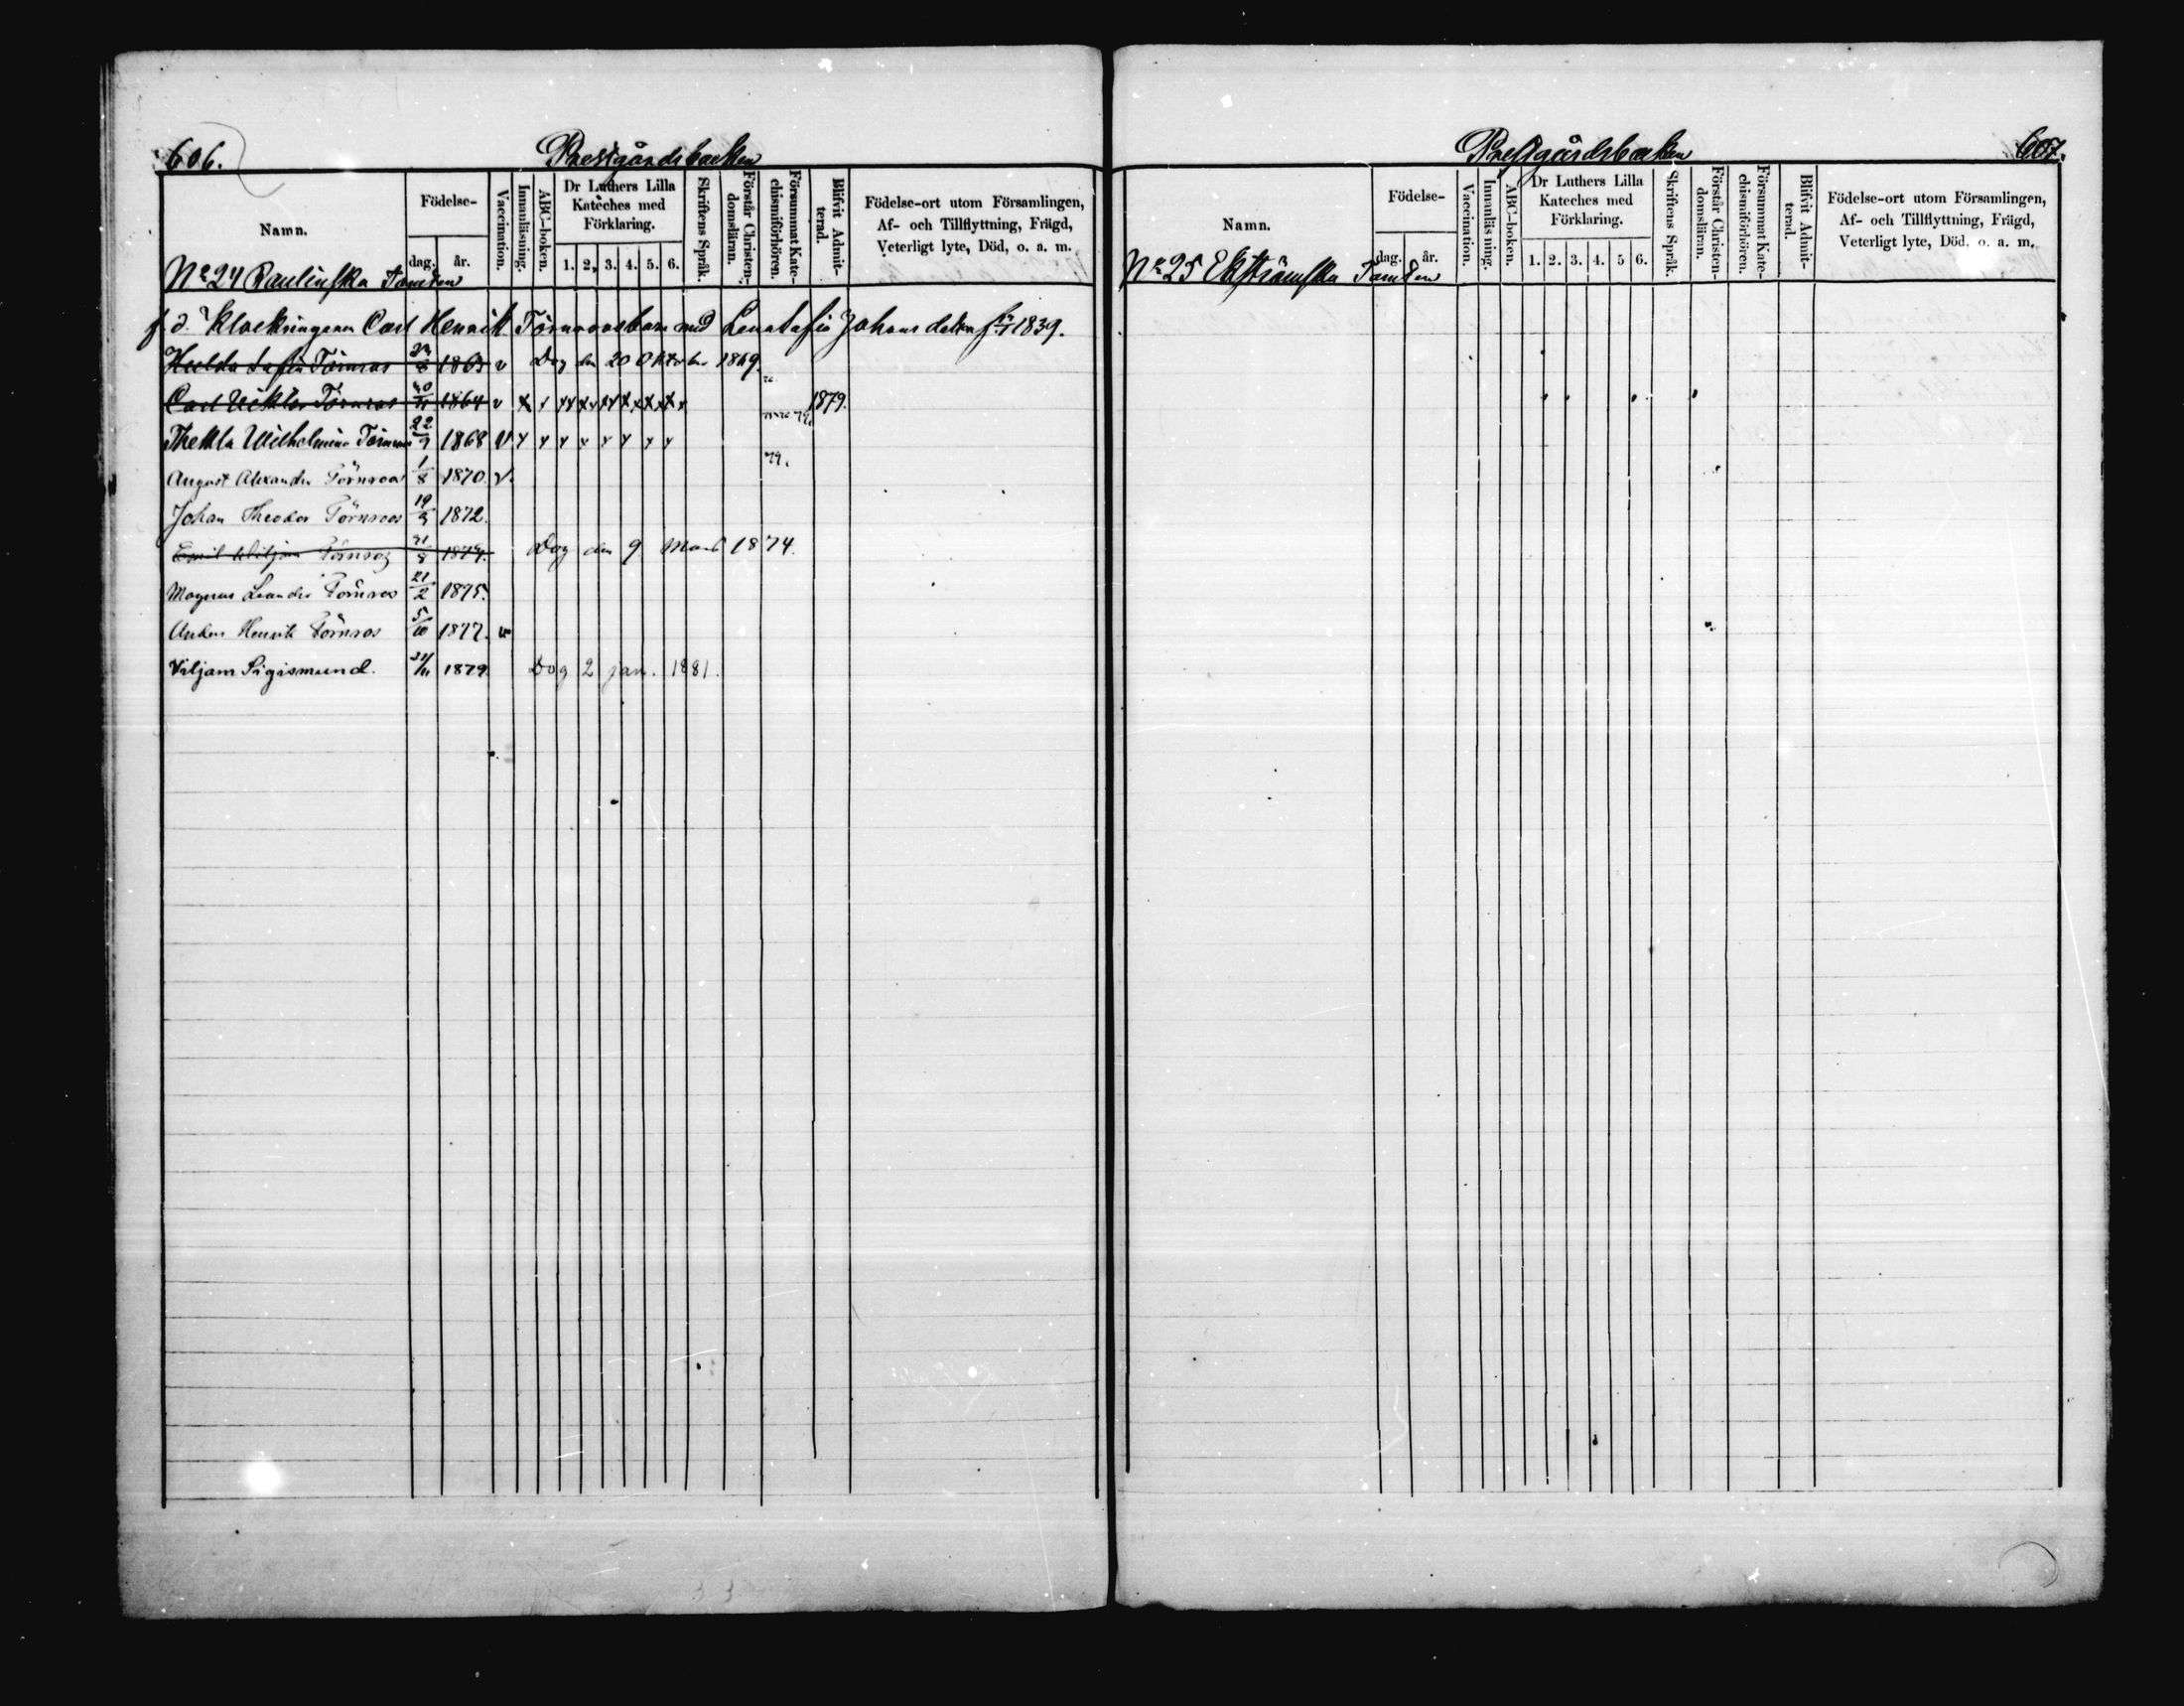 606. Prestgårdsbacken
Namn. Födelse- dag. år. Vaccination. Innanläsning. ABC-boken. Dr Luthers Lilla Kateches med Förklaring. 1. 2. 3. 4. 5. 6. Skriftens Språk. Förstår Christendomsläran. Försummat Katechismiförhören. Blifvit Admitterad. Födelse-ort utom Församlingen, Af- och Tillflyttning, Frägd, Veterligt lyte, Död, o. a. m.
No 24 Paulinska Tomten
f. d. Klockringaren Carl Henrik Törnroos barn med Lena Sofia Johansdotter 1839.
Hulda Sofia Törnros 1863 v Dog den 20 Oktober 1869.
Carl Viktor Törnros 1864 v x x x x x x x x 1879.
Thekla Wilhelmina Törnroos 22 1868 v x x x x x x x x 79.
August Alexander Törnroos 1/8 1870. v.
Johan Theodor Törnroos 19 1872.
Emil Wiljam Törnros 1874. Dog den 9 Mars 1874.
Magnus Leander Törnros 21/2 1875.
Anders Henrik Törnros 5/10 1877. v
Viljam Sigismund. 1879 Dog 2 jan. 1881.
Prestgårdsbacken 607.
Namn. Födelse- dag. år. Vaccination. Innanläsning. ABC-boken. Dr Luthers Lilla Kateches med Förklaring. 1. 2. 3. 4. 5 6. Skriftens Språk. Förstår Christendomsläran. Försummat Katechismiförhören. Blifvit Admitterad. Födelse-ort utom Församlingen, Af- och Tillflyttning, Frägd, Veterligt lyte, Död, o. a. m.
No 25 Ekströmska Tomten